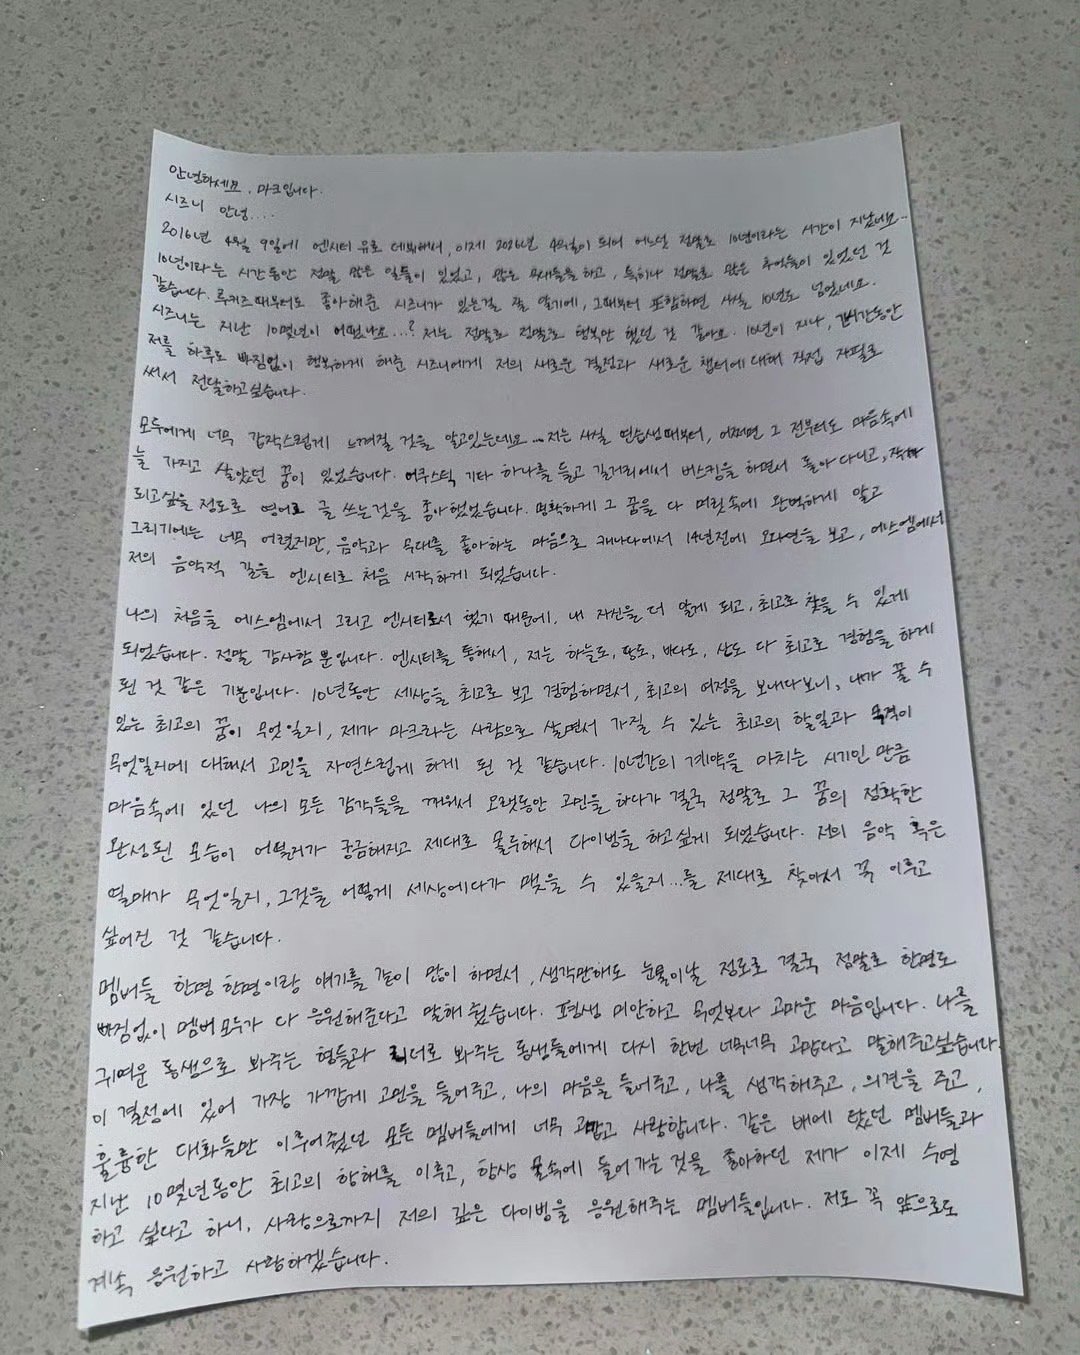 안녕하세요, 마크입니다.
시즈니 안녕....
2016년 4월 9일에 엔시티 유로 데뷔해서, 이제 2026년 4월이 되어 어느덧 정말로 10년이라는 시간이 지났네요..
10년이라는 시간동안 정말 많은 일들이 있었고, 많은 무대들을 하고, 특히나 정말로 많은 추억들이 있었던 것
같습니다. 루키즈때부터도 좋아해준 시즈니가 있는걸 잘 알기에, 그때부터 포함하면 사실 10년도 넘었네요.
시즈니는 지난 10몇년이 어땠나요...? 저는 정말로 정말로 행복만 했던 것 같아요. 10년이 지나, 긴시간동안
저를 하루도 빠짐없이 행복하게 해준 시즈니에게 저의 새로운 결정과 새로운 챕터에 대해 직접 자필로
써서 전달하고싶습니다.
모두에게 너무 갑작스럽게 느껴질 것을 알고있는데요... 저는 사실 연습생때부터, 어쩌면 그 전부터도 마음속에
늘 가지고 살았던 꿈이 있었습니다. 어쿠스틱 기타 하나를 들고 길거리에서 버스킹을 하면서 돌아다니고, 작가
되고싶을 정도로 영어로 글 쓰는것을 좋아했었습니다. 명확하게 그 꿈을 다 머릿속에 완벽하게 알고
그리기에는 너무 어렸지만, 음악과 무대를 좋아하는 마음으로 캐나다에서 14년전에 오디션을 보고, 에스엠에서
저의 음악적 길을 엔시티로 처음 시작하게 되었습니다.
나의 처음을 에스엠에서 그리고 엔시티로서 했기 때문에, 내 자신을 더 알게 되고, 최고로 찾을 수 있게
되었습니다. 정말 감사할 뿐입니다. 엔시티를 통해서, 저는 하늘도, 땅도, 바다도, 산도 다 최고로 경험을 하게
된 것 같은 기분입니다. 10년동안 세상을 최고로 보고 경험하면서, 최고의 여정을 보내다보니, 내가 꿀 수
있는 최고의 꿈이 무엇일지, 제가 마크라는 사람으로 살면서 가질 수 있는 최고의 할일과 목적이
무엇일지에 대해서 고민을 자연스럽게 하게 된 것 같습니다. 10년간의 계약을 마치는 시기인 만큼
마음속에 있던 나의 모든 감각들을 깨워서 오랫동안 고민을 하다가 결국 정말로 그 꿈의 정확한
완성된 모습이 어떨지가 궁금해지고 제대로 몰두해서 다이빙을 하고싶게 되었습니다. 저의 음악 혹은
열매가 무엇일지, 그것을 어떻게 세상에다가 맺을 수 있을지...를 제대로 찾아서 꼭 이루고
싶어진 것 같습니다.
멤버들 한명 한명이랑 얘기를 같이 많이 하면서, 생각만해도 눈물이날 정도로 결국 정말로 한명도
빠짐없이 멤버 모두가 다 응원해준다고 말해 줬습니다. 평생 미안하고 무엇보다 고마운 마음입니다. 나를
귀여운 동생으로 봐주는 형들과 리더로 봐주는 동생들에게 다시 한번 너무너무 고맙다고 말해주고싶습니다.
이 결정에 있어 가장 가깝게 고민을 들어주고, 나의 마음을 들어주고, 나를 생각해주고, 의견을 주고,
훌륭한 대화들만 이루어줬던 모든 멤버들에게 너무 고맙고 사랑합니다. 같은 배에 탔던 멤버들과
지난 10몇년동안 최고의 항해를 이루고, 항상 물속에 들어가는 것을 좋아하던 제가 이제 수영
하고 싶다고 하니, 사랑으로까지 저의 깊은 다이빙을 응원해주는 멤버들입니다. 저도 꼭 앞으로도
계속 응원하고 사랑하겠습니다.